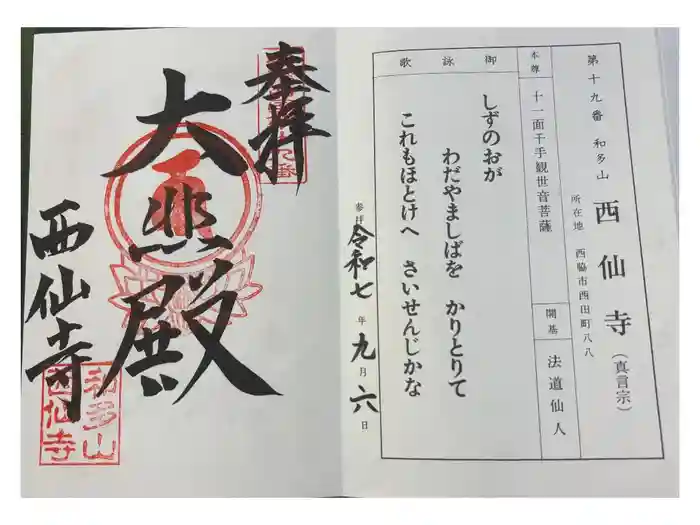 第十九番 和多山 西仙寺(真言宗)
所在地 西脇市西田町八八
本尊 十一面千手観世音菩薩 開基 法道仙人
御詠歌
しずのおが
わだやましばを かりとりて
これもほとけへ さいせんじかな
参拝 令和七年九月六日
奉拝
大悲殿
西仙寺
和多山
西仙寺